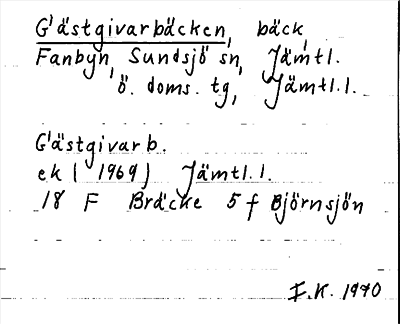 Gästgivarbäcken, bäck,
Fanbyn, Sundsjö sn, Jämtl.
ö. doms. tg, Jämtl.l.
Gästgivarb.
ek (1969) Jämtl.l.
18 F Bräcke 5 f Björnsjön
I.K. 1970